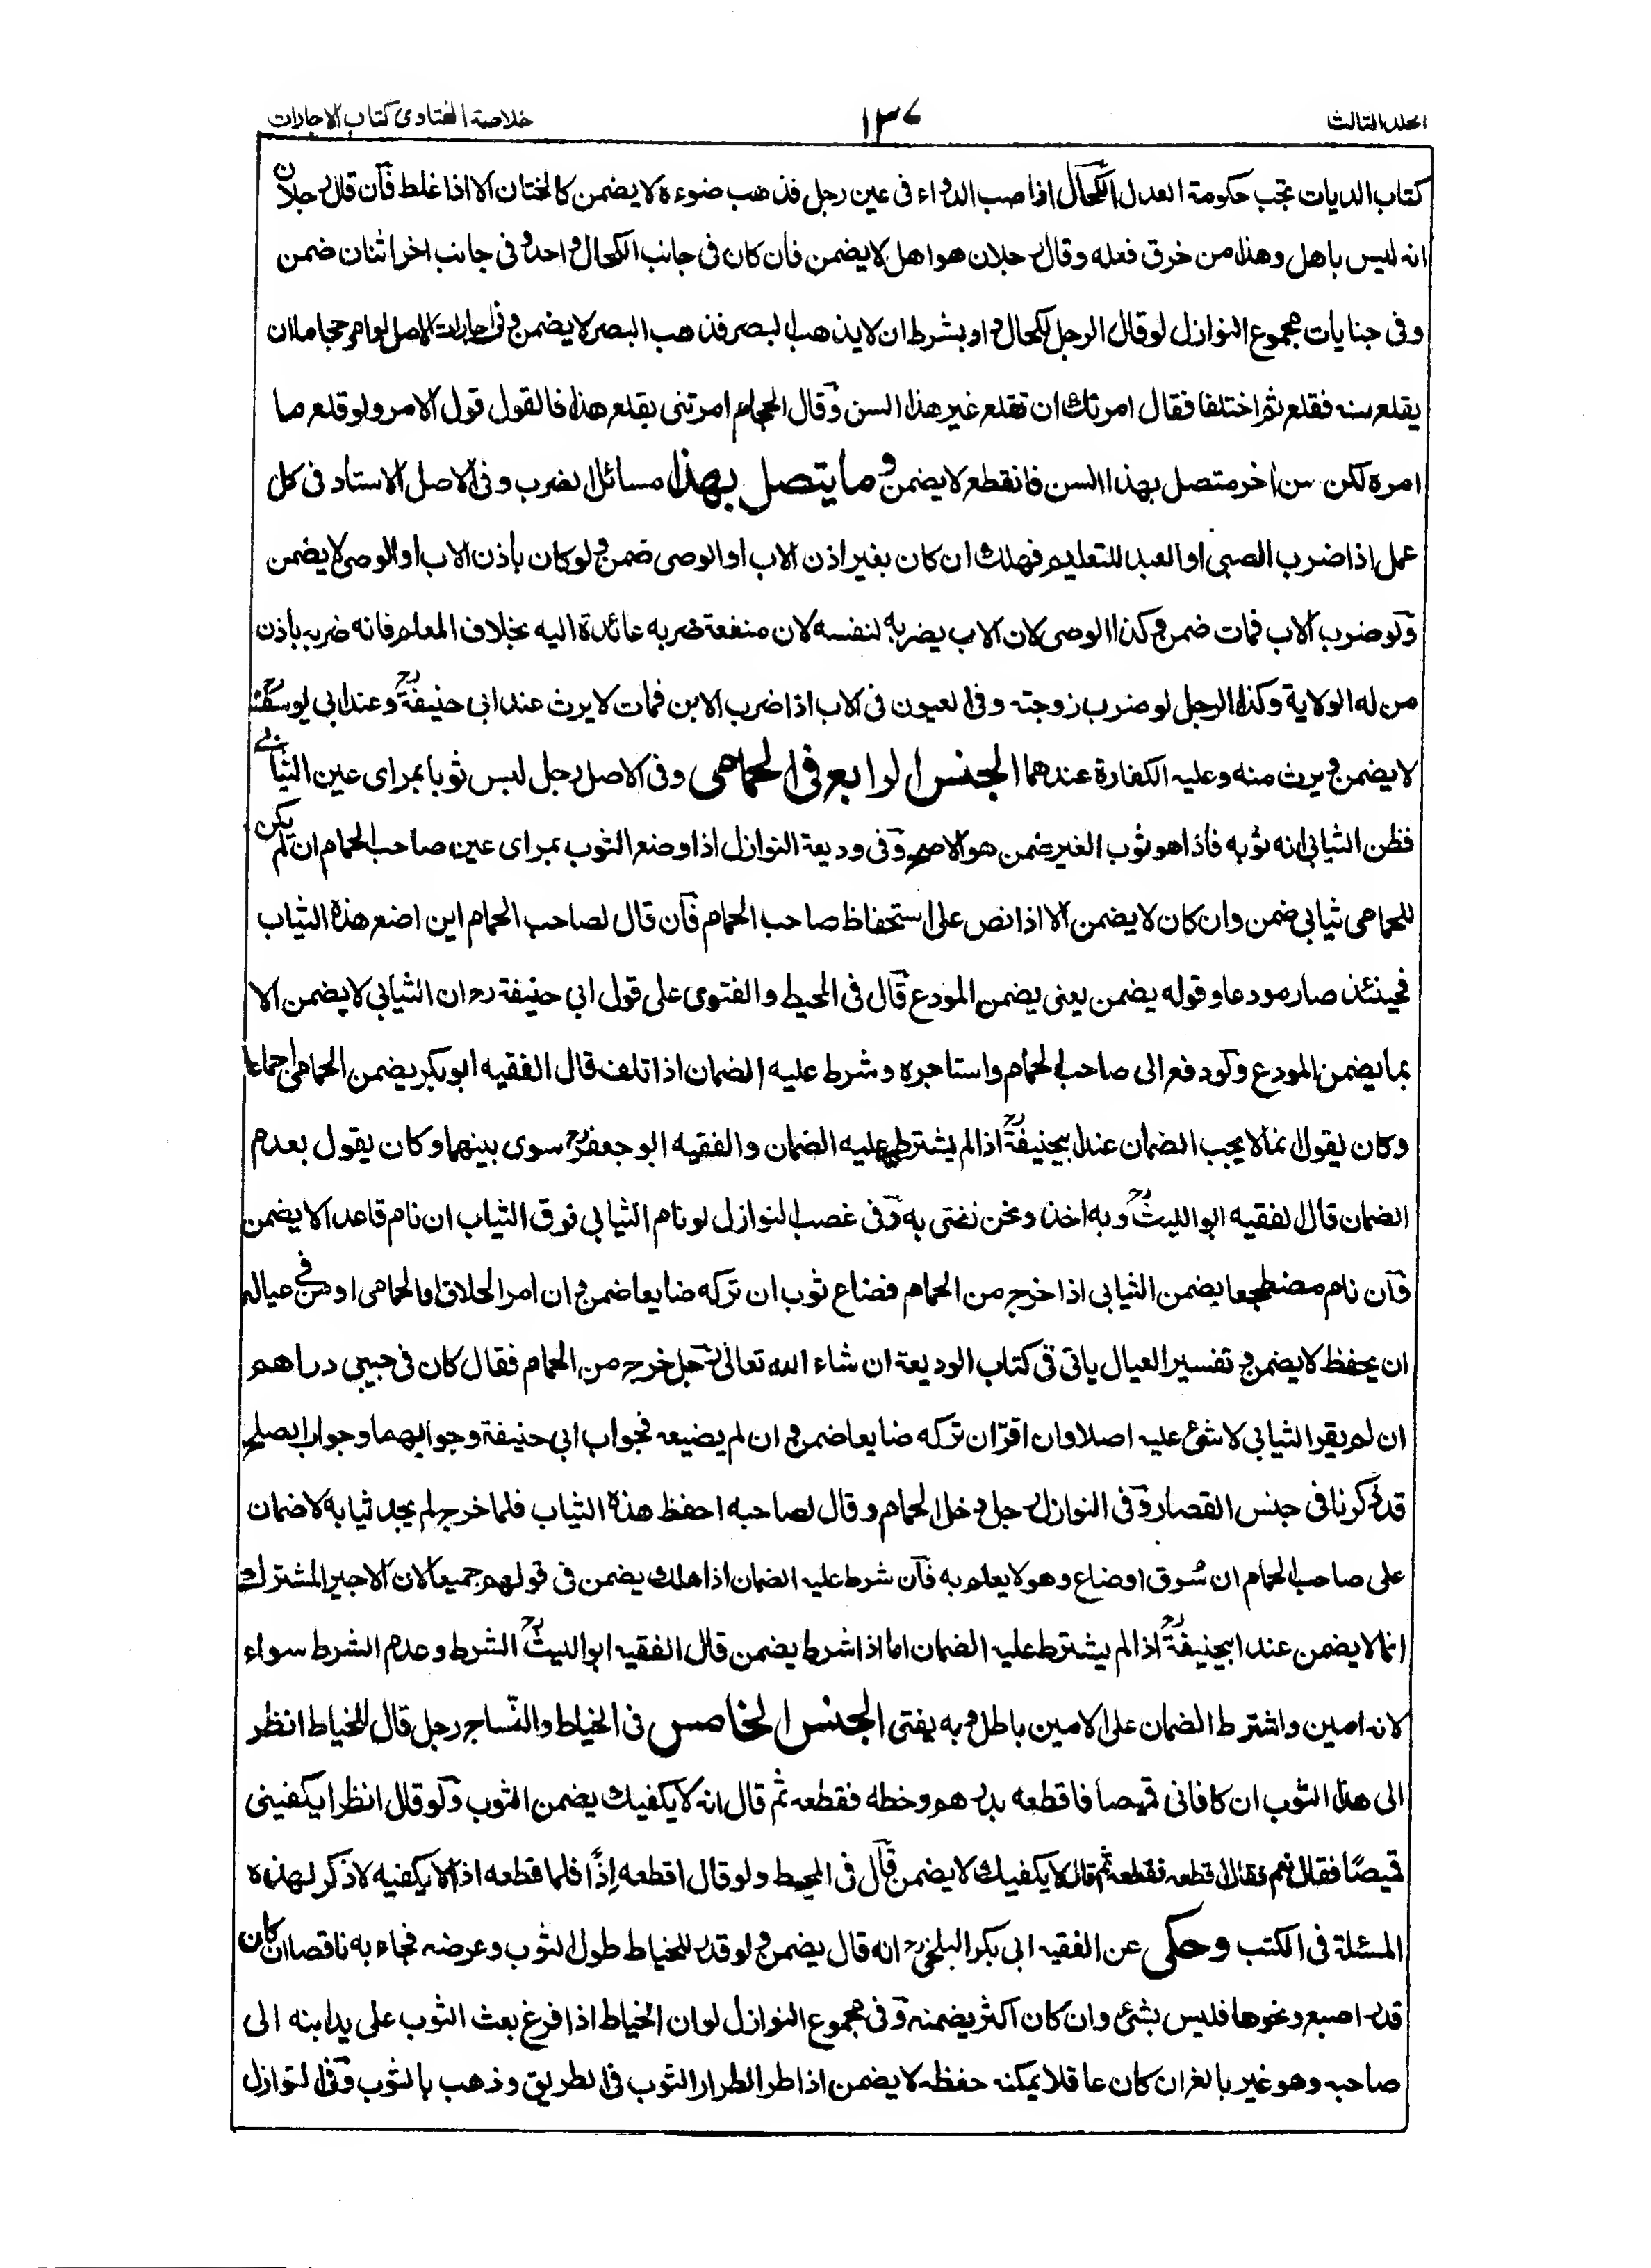 الجلد الثالث ١٣٧ خلاصة الفتاوى كتاب الاجارات
كتاب الديات تجب حكومة العدل الكحال اذا صب الدواء فى عين رجل فذهب ضوءه لا يضمن كالختان الا اذا غلط فآن قال رجلان
انه ليس باهل وهذا من خرق فعله وقال رجلان هو اهل لا يضمن فان كان فى جانب الكحال واحد وفى جانب اخر اثنان ضمن
وفى جنايات مجموع النوازل لو قال الرجل لكحال داو بشرط ان لا يذهب البصر فذهب البصر لا يضمن وفى اجارات الاصل لو امر حجاما ان
يقلع سنه فقلع ثم اختلفا فقال امرتك ان تقلع غير هذا السن وقال الحجام امرتنى بقلع هذا فالقول قول الامر ولو قلع ما
امره لكن سن اخر متصل بهذا السن فانقطع لا يضمن وما يتصل بهذا مسائل الضرب وفى الاصل الاستاد فى كل
عمل اذا ضرب الصبى او العبد للتعليم فهلك ان كان بغير اذن الاب او الوصى ضمن ولو كان باذن الاب او الوصى لا يضمن
ولو ضرب الاب فمات ضمن وكذا الوصى لان الاب يضربه لنفسه لان منفعة ضربه عائدة اليه بخلاف المعلم فانه ضربه باذن
من له الولاية وكذا الرجل لو ضرب زوجته وفى العيون فى الاب اذا ضرب الابن فمات لا يرث عند ابى حنيفةؒ وعند ابى يوسفؒ
لا يضمن ويرث منه وعليه الكفارة عندهما الجنس الرابع فى الحمامى وفى الاصل رجل لبس ثوبا بمراى عين الثيابى
فظن الثيابى انه ثوبه فاذا هو ثوب الغير ضمن هو الاصح وفى وديعة النوازل اذا وضع الثوب بمراى عين صاحب الحمام ان لم يكن
للحمامى ثيابى ضمن وان كان لا يضمن الا اذا نص على استحفاظ صاحب الحمام فآن قال لصاحب الحمام اين اضع هذه الثياب
فحينئذ صار مودعا وقوله يضمن يعنى يضمن المودع قال فى المحيط والفتوى على قول ابى حنيفة رح ان الثيابى لا يضمن الا
بما يضمن المودع ولو دفع الى صاحب الحمام واستاجره وشرط عليه الضمان اذا تلف قال الفقيه ابو بكر يضمن الحمامى اجماعا
وكان يقول انما لا يجب الضمان عند ابيحنيفةؒ اذا لم يشترط عليه الضمان والفقيه ابو جعفرؒ سوى بينهما وكان يقول بعدم
الضمان قال الفقيه ابو الليثؒ وبه اخذ ونحن نفتى به وفى غصب النوازل لو نام الثيابى فوق الثياب ان نام قاعدا لا يضمن
فآن نام مضطجعا يضمن الثيابى اذا خرج من الحمام فضاع ثوب ان تركه ضايعا ضمن وان امر الحلاق او الحمامى او من فى عياله
ان يحفظ لا يضمن وتفسير العيال ياتى فى كتاب الوديعة ان شاء الله تعالى رجل خرج من الحمام فقال كان فى جيبى دراهم
ان لم يقر الثيابى لا شئ عليه اصلا وان اقر ان تركه ضايعا ضمن وان لم يضيعه فجواب ابى حنيفة وجوابهما وجواب الصلح
قد ذكرنا فى جنس القصار وفى النوازل رجل دخل الحمام وقال لصاحبه احفظ هذه الثياب فلما خرج لم يجد ثيابه لا ضمان
على صاحب الحمام ان سُرق او ضاع وهو لا يعلم به فآن شرط عليه الضمان اذا هلك يضمن فى قولهم جميعا لان الاجير المشترك
انما لا يضمن عند ابيحنيفةؒ اذا لم يشترط عليه الضمان اما اذا شرط يضمن قال الفقيه ابو الليثؒ الشرط وعدم الشرط سواء
لانه امين واشترط الضمان على الامين باطل وبه يفتى الجنس الخامس فى الخياط والنساج رجل قال للخياط انظر
الى هذا الثوب ان كفانى قميصا فاقطعه بدرهم وخطه فقطعه ثم قال انه لا يكفيك يضمن الثوب ولو قال انظر ايكفينى
قميصًا فقال نعم فقال اقطعه فقطعه ثم قال لا يكفيك لا يضمن قال فى المحيط ولو قال اقطعه اِذًا فلما قطعه اذا لا يكفيه لا ذكر لهذه
المسئلة فى الكتب وحكى عن الفقيه ابى بكر البلخى رح انه قال يضمن ولو قدر للخياط طول الثوب وعرضه فجاء به ناقصا ان كان
قدر اصبع ونحوها فليس بشئ وان كان اكثر يضمنه وفى مجموع النوازل لو ان الخياط اذا فرغ بعث الثوب على يد ابنه الى
صاحبه وهو غير بالغ ان كان عاقلا يمكنه حفظه لا يضمن اذا طر الطرار الثوب فى الطريق وذهب بالثوب وفى النوازل